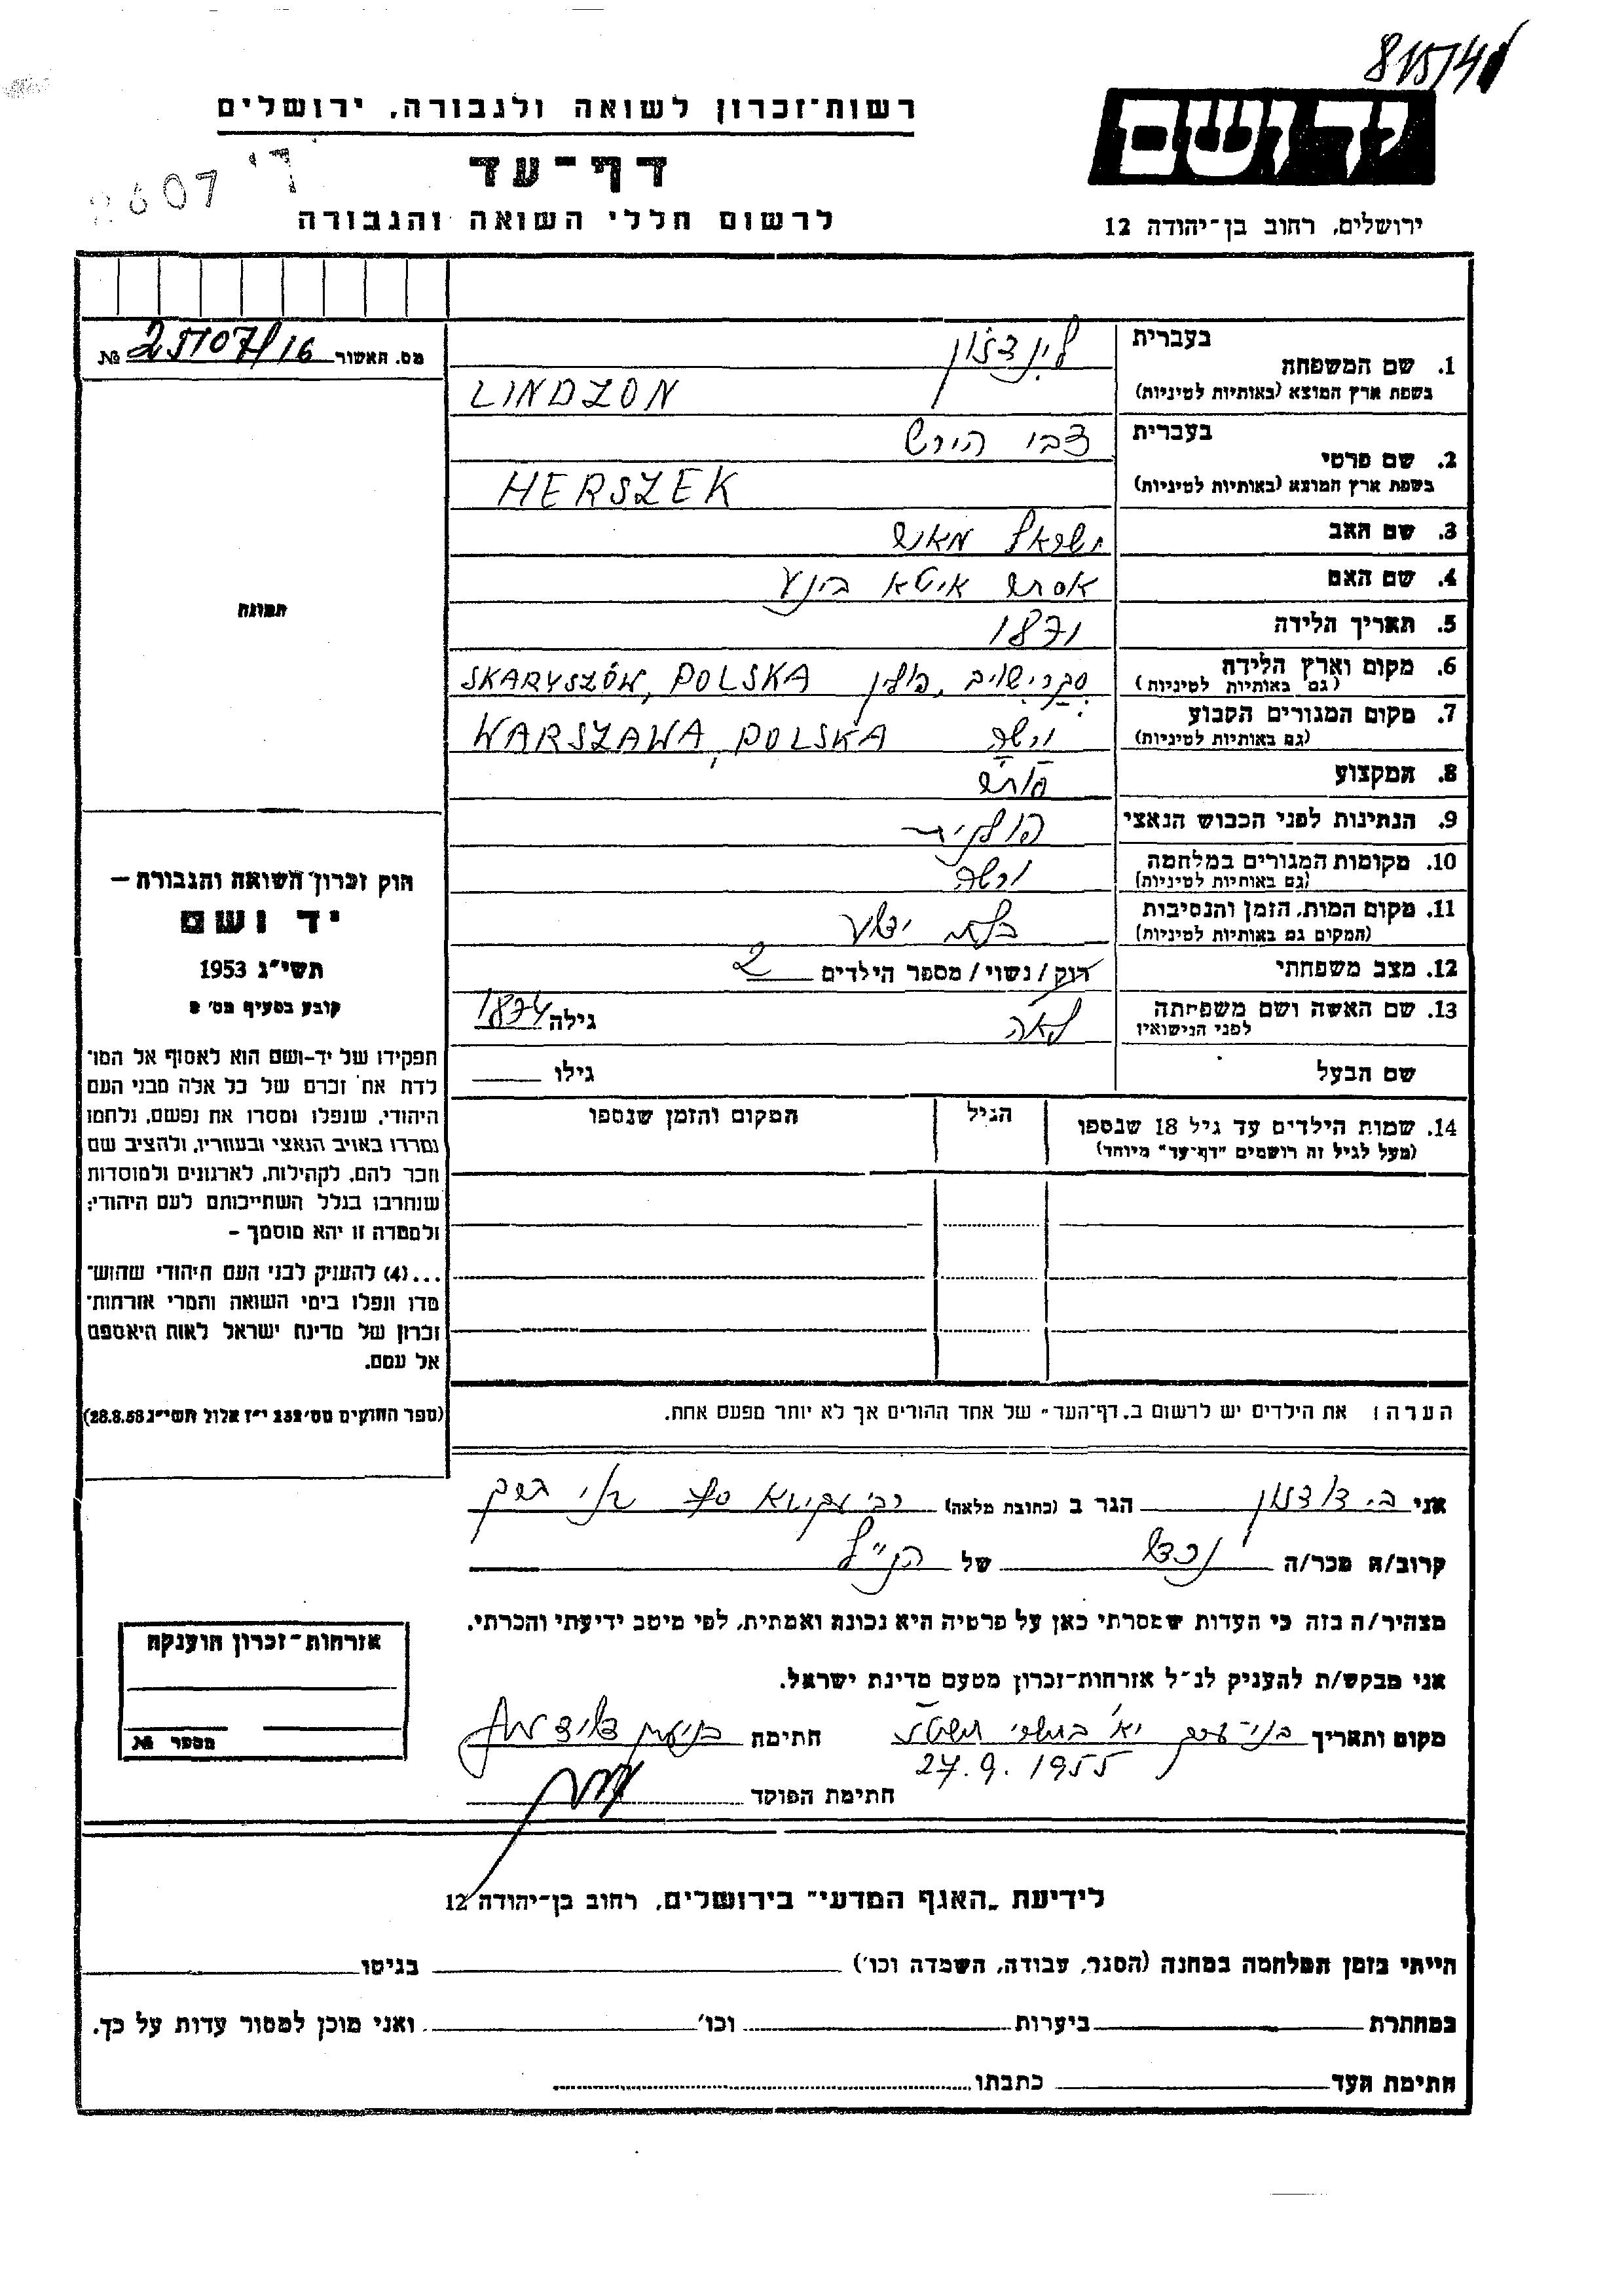 815/41
רשות־זכרון לשואה ולגבורה, ירושלים
יד ושם
דף־עד
ד'
לרשום חללי השואה והגבורה
ירושלים, רחוב בן־יהודה 12
מס. האשור 25107/16 №
1. שם המשפחה בעברית לינדזון
בשפת ארץ המוצא (באותיות לטיניות) LINDZON
2. שם פרטי בעברית צבי הירש
בשפת ארץ המוצא (באותיות לטיניות) HERSZEK
3. שם האב ישראל
4. שם האם אסתר איטא
5. תאריך הלידה 1871
6. מקום וארץ הלידה (גם באותיות לטיניות) סקרישוב, פולין SKARYSZÓW, POLSKA
7. מקום המגורים הקבוע (גם באותיות לטיניות) ורשה WARSZAWA, POLSKA
8. המקצוע
9. הנתינות לפני הכבוש הנאצי פולנית
10. מקומות המגורים במלחמה (גם באותיות לטיניות) ורשה
11. מקום המות, הזמן והנסיבות (המקום גם באותיות לטיניות) בלתי ידוע
12. מצב משפחתי רוק/נשוי/מספר הילדים 2
13. שם האשה ושם משפחתה לפני הנישואין לאה גילה 1874
שם הבעל גילו
14. שמות הילדים עד גיל 18 שנספו הגיל המקום והזמן שנספו
(מעל לגיל זה רושמים "דף־עד" מיוחד)
תמונה
חוק זכרון השואה והגבורה –
יד ושם
תשי"ג 1953
קובע בסעיף מס' 2
תפקידו של יד־ושם הוא לאסוף אל המו־
לדת את זכרם של כל אלה מבני העם
היהודי, שנפלו ומסרו את נפשם, נלחמו
ומרדו באויב הנאצי ובעוזריו, ולהציב שם
וזכר להם, לקהילות, לארגונים ולמוסדות
שנחרבו בגלל השתייכותם לעם היהודי;
ולמטרה זו יהא מוסמך –
...(4) להעניק לבני העם היהודי שהוש־
מדו ונפלו בימי השואה והמרי אזרחות־
זכרון של מדינת ישראל לאות היאספם
אל עמם.
(ספר החוקים מס' 132 י"ז אלול תשי"ג 28.8.53)
הערה: את הילדים יש לרשום ב"דף־העד" של אחד ההורים אך לא יותר מפעם אחת.
אני הגר ב (כתובת מלאה) רבי עקיבא בני ברק
קרוב/ה מכר/ה נכד של הנ"ל
מצהיר/ה בזה כי העדות שמסרתי כאן על פרטיה היא נכונה ואמתית, לפי מיטב ידיעתי והכרתי.
אני מבקש/ת להעניק לנ"ל אזרחות־זכרון מטעם מדינת ישראל.
מקום ותאריך בני־ברק י"א בתשרי חתימה
27.9.1955
חתימת הפוקד
אזרחות־זכרון הוענקה
מספר №
לידיעת "האגף המדעי" בירושלים, רחוב בן־יהודה 12
הייתי בזמן המלחמה במחנה (הסגר, עבודה, השמדה וכו') בגיטו
במחתרת ביערות וכו' ואני מוכן למסור עדות על כך.
חתימת העד כתבתו